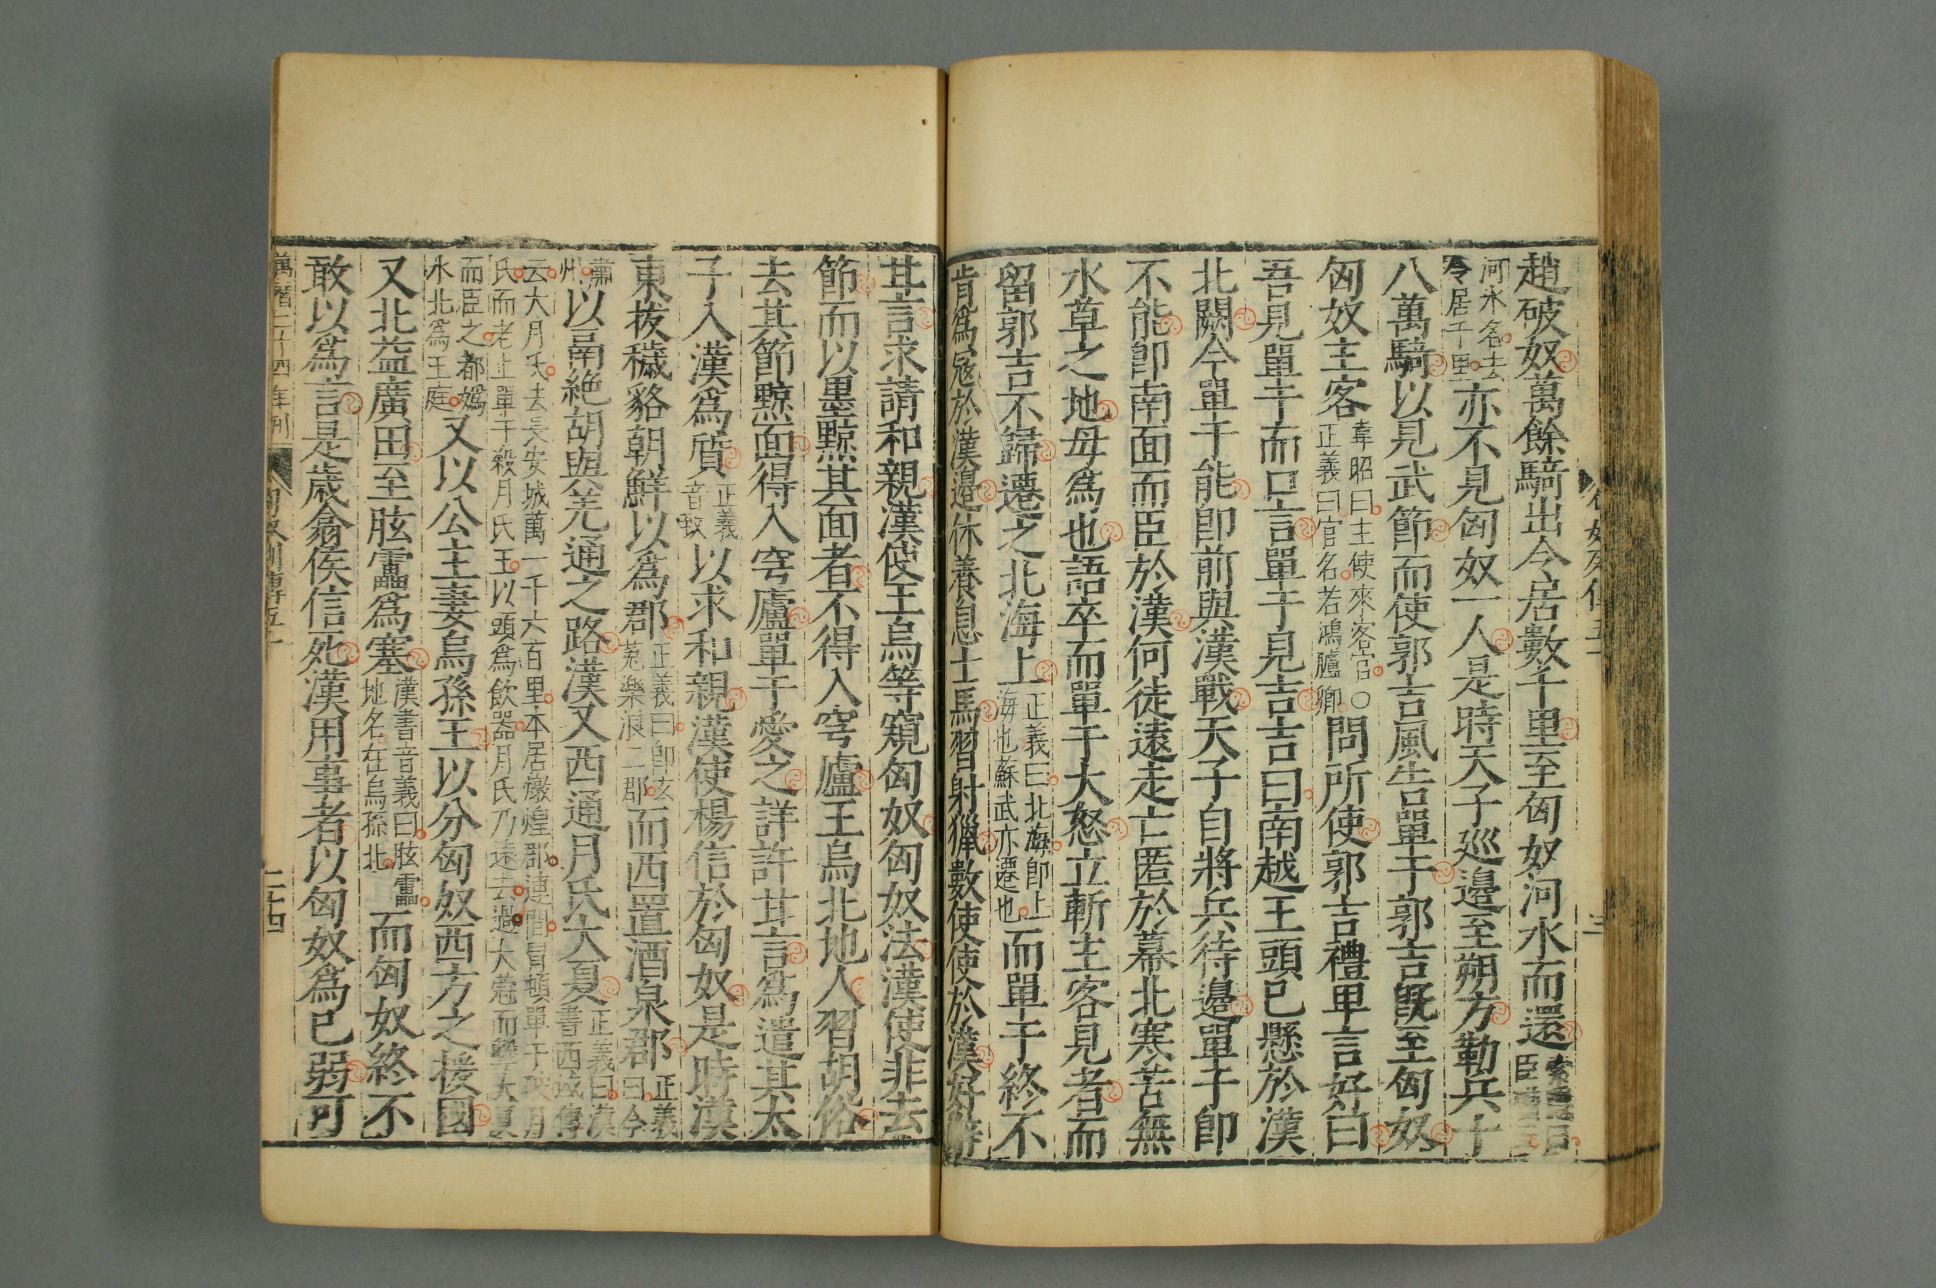 趙破奴萬餘騎出令居數千里至匈奴河水而還
臣瓚曰
河水名去
令居千里亦不見匈奴一人是時天子巡邊至朔方勒兵十
八萬騎以見武節而使郭吉風告單于郭吉旣至匈奴
匈奴主客韋昭曰主使來客官○
正義曰官名若鴻臚卿問所使郭吉禮卑言好曰
吾見單于而口言單于見吉吉曰南越王頭已懸於漢
北闕今單于能卽前與漢戰天子自將兵待邊單于卽
不能卽南面而臣於漢何徒遠走亡匿於幕北寒苦無
水草之地毋爲也語卒而單于大怒立斬主客見者而
留郭吉不歸遷之北海上正義曰北海卽上
海也蘇武亦遷也而單于終不
肯爲寇於漢邊休養息士馬習射獵數使使於漢好辭
甘言求請和親漢使王烏等窺匈奴匈奴法漢使非去
節而以墨黥其面者不得入穹廬王烏北地人習胡俗
去其節黥面得入穹廬單于愛之詳許甘言爲遣其太
子入漢爲質正義
音致以求和親漢使楊信於匈奴是時漢
東拔穢貉朝鮮以爲郡正義曰卽玄
菟樂浪二郡而西置酒泉郡正義
曰今
肅
州以鬲絶胡與羌通之路漢又西通月氏大夏正義曰漢
書西域傳
云大月氏去長安城萬一千六百里本居燉煌郡連間冒頓單于破月
氏而老上單于殺月氏王以頭爲飲器月氏乃遠去過大宛而擊大夏
而臣之都嬀
水北爲王庭又以公主妻烏孫王以分匈奴西方之援國
又北益廣田至胘靁爲塞漢書音義曰胘靁
地名在烏孫北而匈奴終不
敢以爲言是歲翕侯信死漢用事者以匈奴爲已弱可
萬曆二十四年刊
匈奴列傳五十
二四